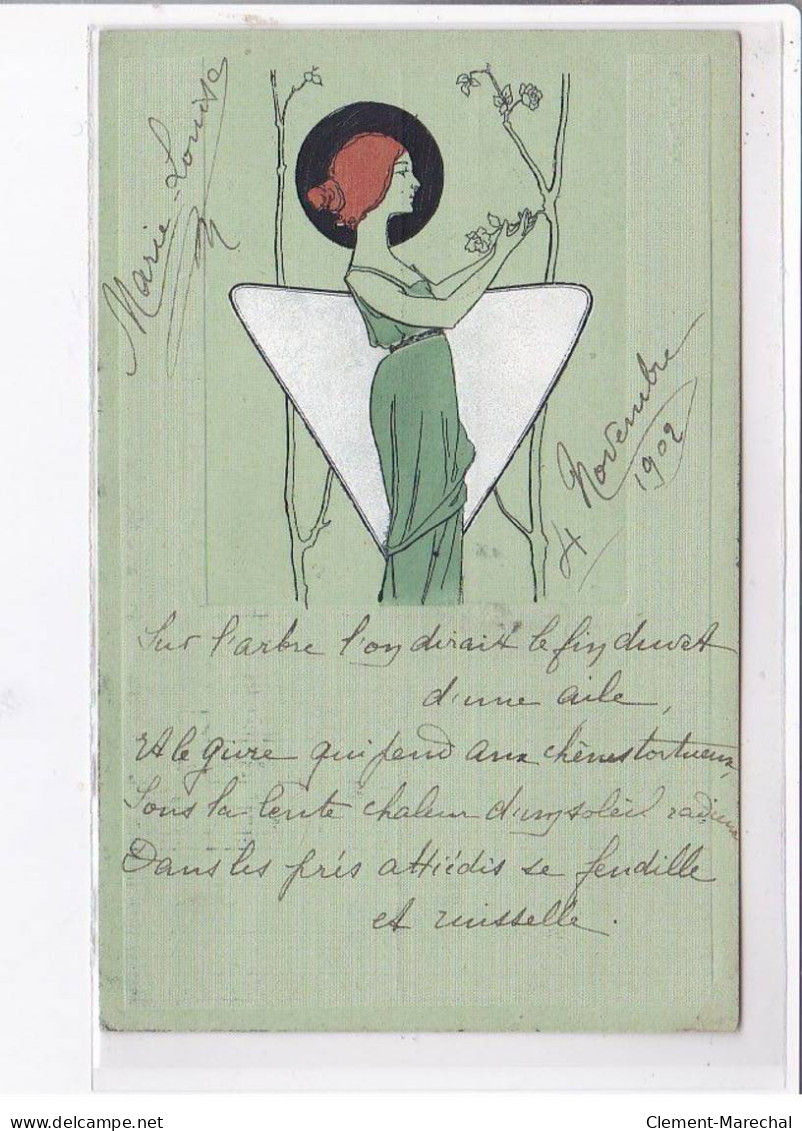 Marie-Louise
4 Novembre
1902
Sur l'arbre l'on dirait le fin duvet
d'une aile,
Et le givre qui pend aux chênes tortueux,
Sous la lente chaleur d'un soleil radieux
Dans les prés attiédis se fendille
et ruisselle.
Clement-Marechal